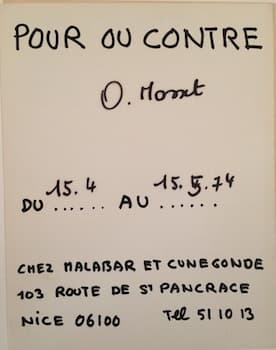 POUR OU CONTRE
O. Mosset
15.4 15.5.74
DU ...... AU ......
CHEZ MALABAR ET CUNEGONDE
103 ROUTE DE ST PANCRACE
NICE 06100 Tel 51 10 13